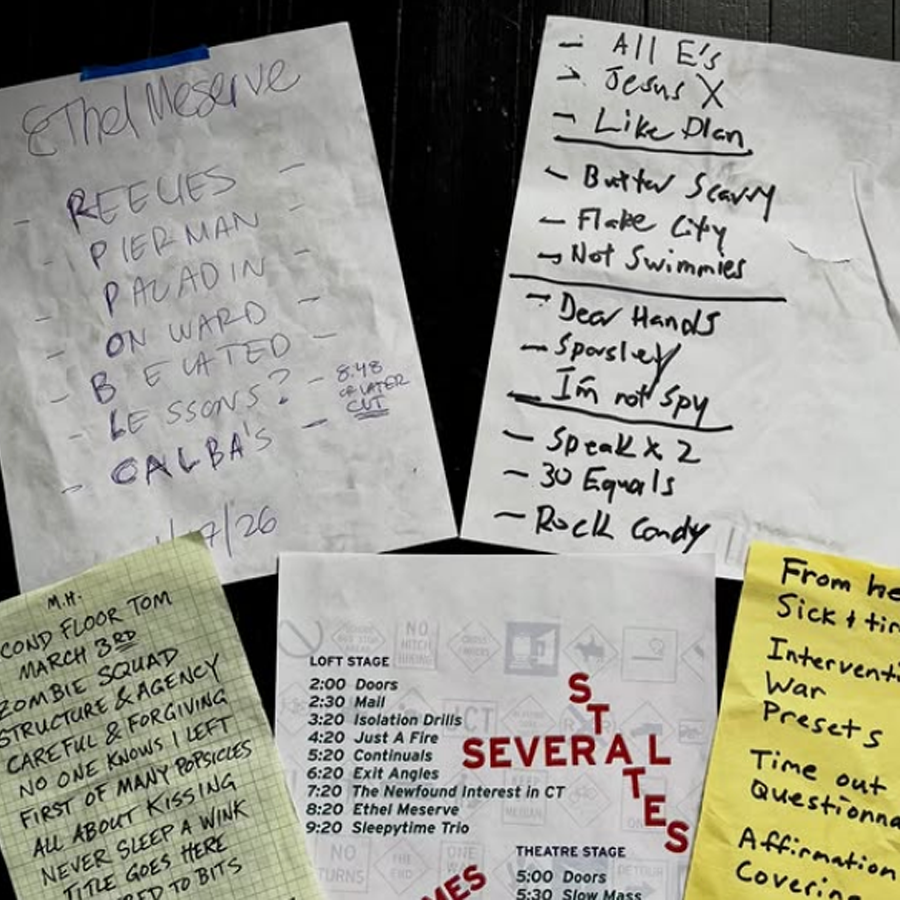 Ethel Meserve
- REEUES -
- PIERMAN -
- PALADIN -
- ON WARD -
- BELATED -
- LESSONS? -
8:48
OR LATER
CUT
- CALBA'S -
/26
- All E's
- Jesus X
- Like Plan
- Butter Scavvy
- Flake City
- Not Swimmies
- Dear Hands
- Sparsley
- I'm not Spy
- Speak x 2
- 30 Equals
- Rock Candy
M.H.
COND FLOOR TOM
MARCH 3RD
ZOMBIE SQUAD
STRUCTURE & AGENCY
CAREFUL & FORGIVING
NO ONE KNOWS I LEFT
FIRST OF MANY POPSICLES
ALL ABOUT KISSING
NEVER SLEEP A WINK
TITLE GOES HERE
ED TO BITS
LOFT STAGE
2:00 Doors
2:30 Mail
3:20 Isolation Drills
4:20 Just A Fire
5:20 Continuals
6:20 Exit Angles
7:20 The Newfound Interest in CT
8:20 Ethel Meserve
9:20 Sleepytime Trio
SEVERAL
STATES
THEATRE STAGE
5:00 Doors
5:30 Slow Mass
MES
NO HITCH HIKING
NO TURNS
From he
Sick & tir
Interventi
War
Presets
Time out
Questionna
Affirmation
Covering